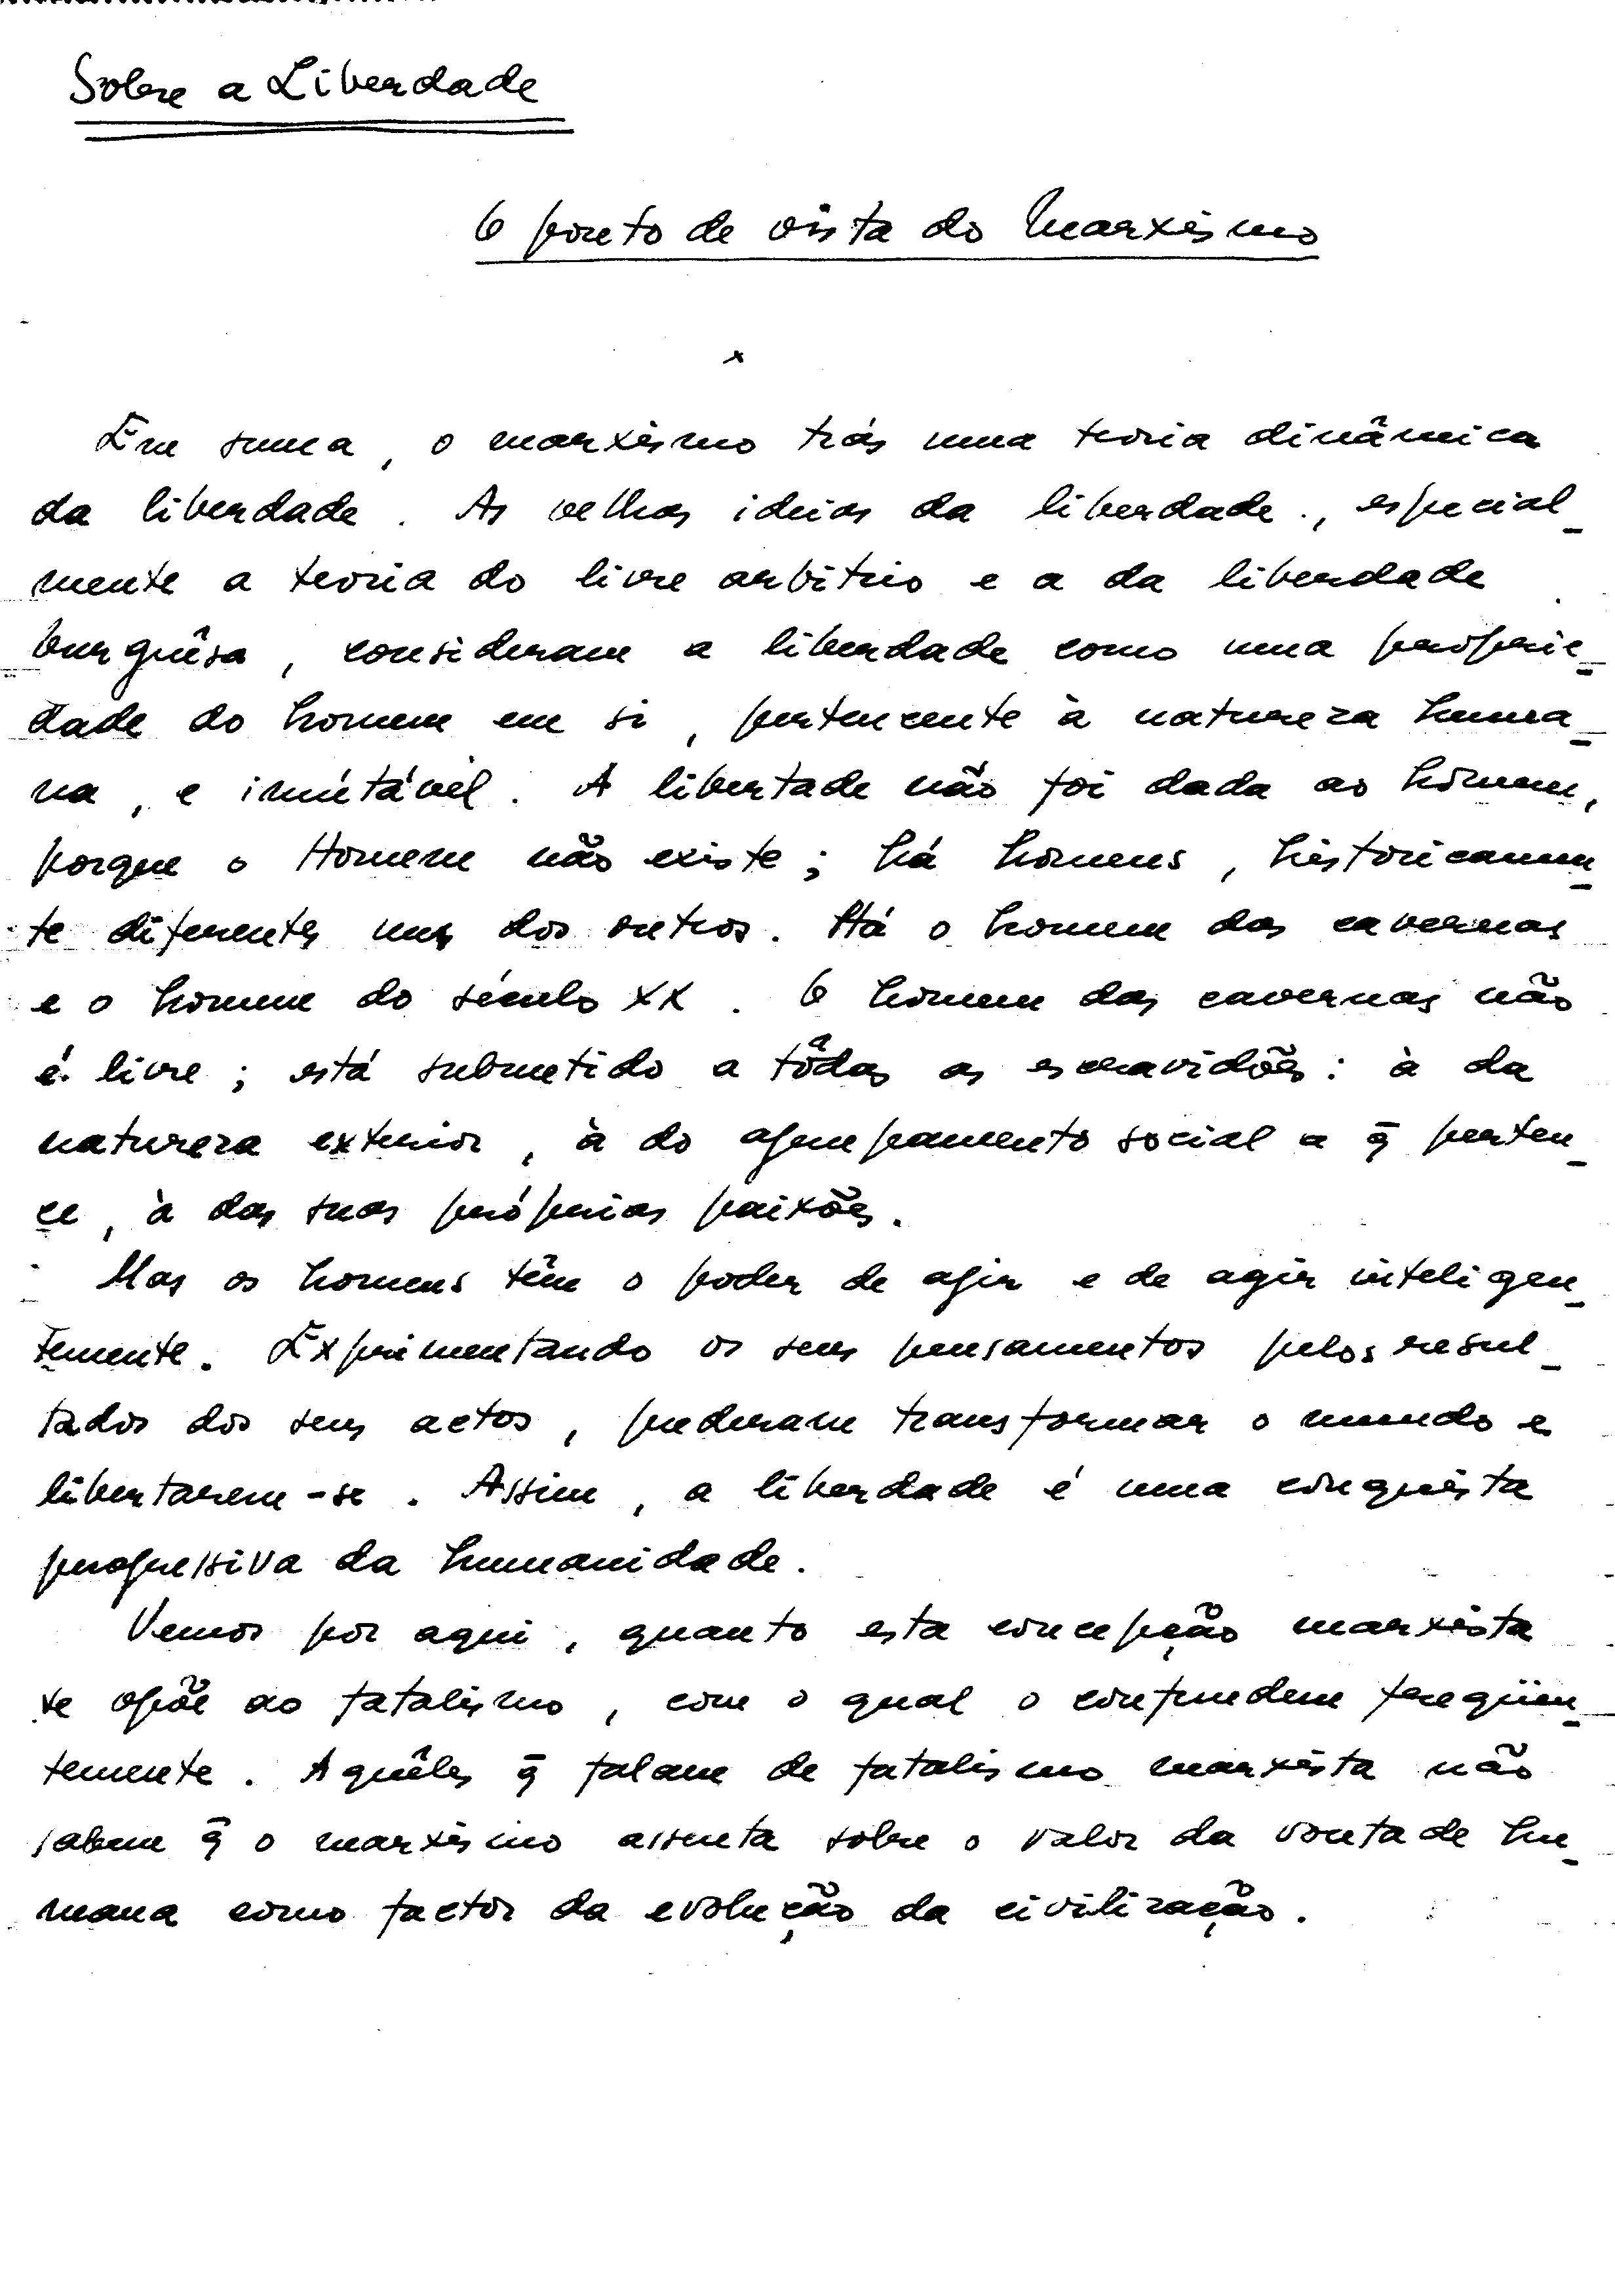 Sobre a Liberdade
O ponto de vista do Marxismo
x
Em suma, o marxismo trás uma teoria dinâmica
da liberdade. As velhas ideias da liberdade, especial-
mente a teoria do livre arbítrio e a da liberdade
burguêsa, consideram a liberdade como uma proprie-
dade do homem em si, pertencente à natureza huma-
na, e imutável. A libertade não foi dada ao homem,
porque o Homem não existe; há homens, historicamen-
te diferentes uns dos outros. Há o homem das cavernas
e o homem do século XX. O homem das cavernas não
é livre; está submetido a tôdas as escravidões: à da
natureza exterior, à do agrupamento social a q̄ perten-
ce, à das suas próprias paixões.
Mas os homens têm o poder de agir e de agir inteligen-
temente. Exprimentando os seus pensamentos pelos resul-
tados dos seus actos, puderam transformar o mundo e
libertarem-se. Assim, a liberdade é uma conquista
progressiva da humanidade.
Vemos por aqui, quanto esta concepção marxista
se opõe ao fatalismo, com o qual o confundem freqüen-
temente. Aquêles q̄ falam de fatalismo marxista não
sabem q̄ o marxismo assenta sobre o valor da vontade hu-
mana como factor da evolução da civilização.